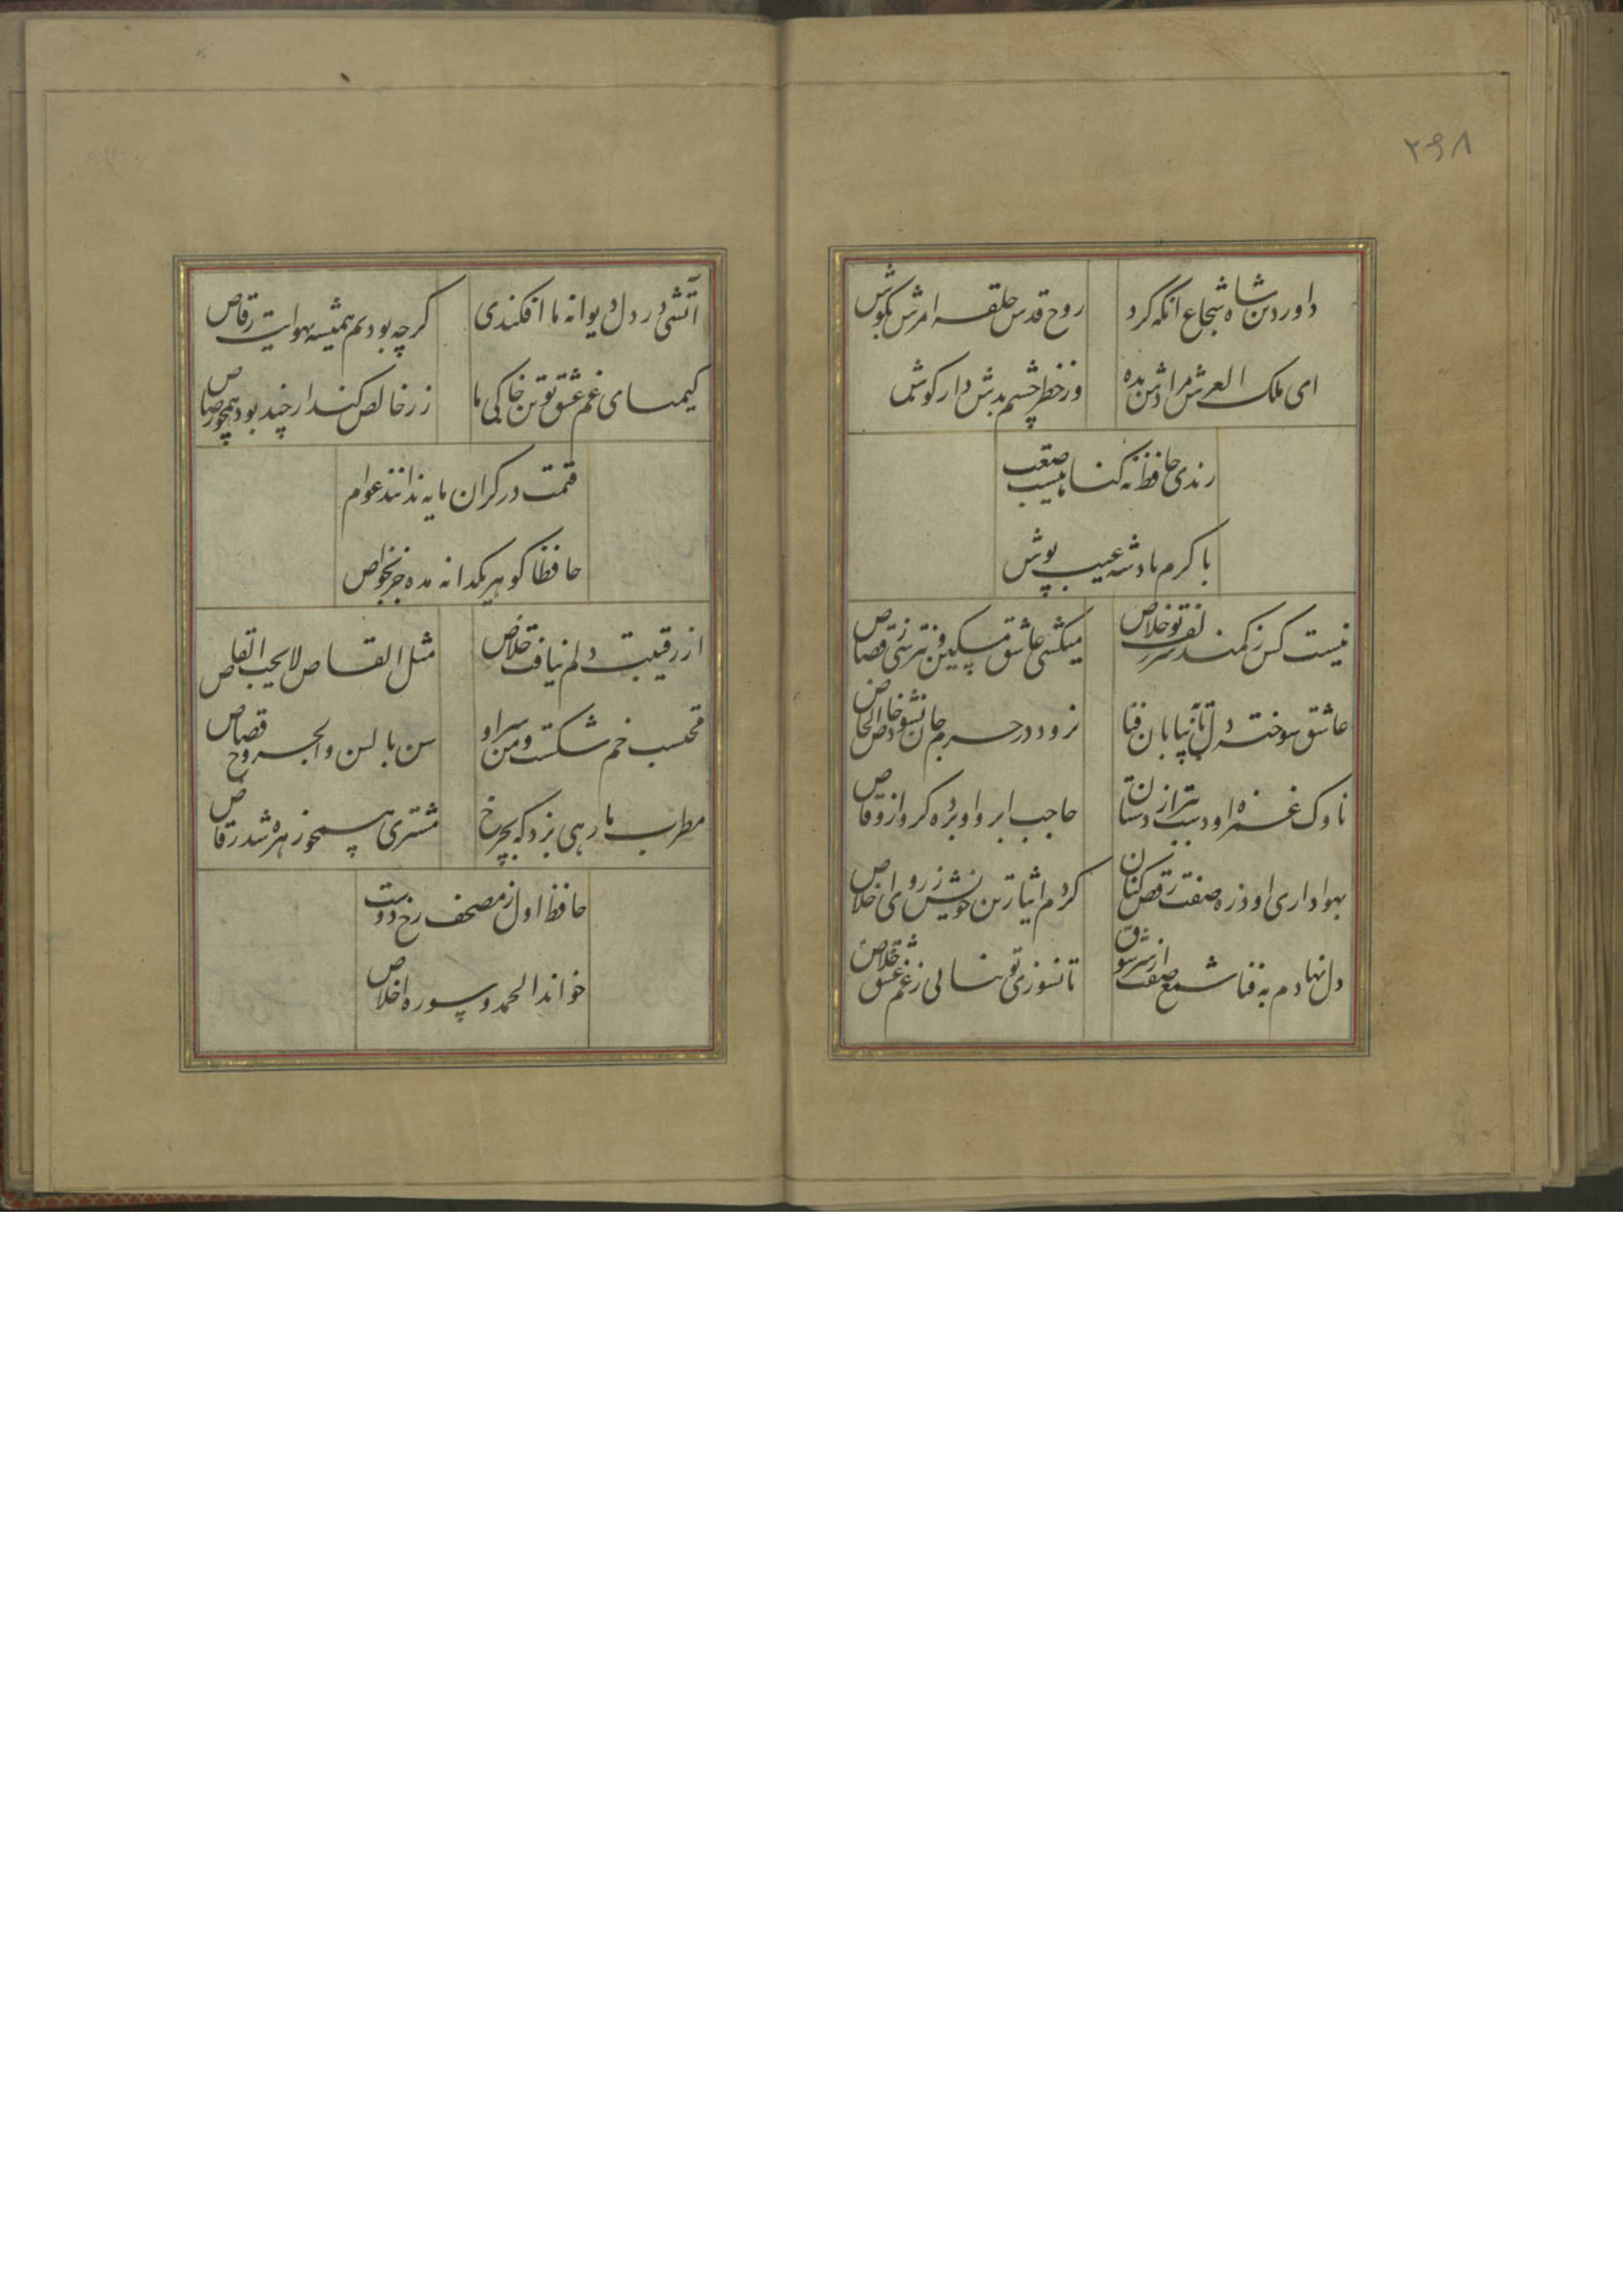 ۲۹۸
داور دین شاه شجاع انکه کرد روح قدس حلقه امرش بکوش
ای ملک العرش مرادش بده وز خطر چشم بدش دار کوش
رندی حافظ نه کناهیست صعب
با کرم پادشه عیب پوش
نیست کس را ز کمند سر زلف تو خلاص میکشی عاشق مسکین و نترسی ز قصاص
عاشق سوخته دل تا به بیابان فنا نرود در حرم جان نشود خاص الخاص
ناوک غمزه او دست ببرد از دستان حاجب ابروی او برده کرو از وقاص
بهواداری او ذره صفت رقص کنان کردم ایثار تن خویش ز روی اخلاص
دل نهادم به فنا شمع صفت از سر شوق تا نسوزی تو نیابی ز غم عشق خلاص
آتشی در دل دیوانه ما افکندی کرچه بودیم همیشه بهوایت رقاص
کیمیای غم عشق تو تن خاکی ما زر خالص کند ار چند بود همچو رصاص
قیمت در کران مایه ندانند عوام
حافظا کوهر یکدانه مده جز بخواص
از رقیبت دلم نیافت خلاص مثل القاص لا یحب القاص
محتسب خم شکست و من سر او سن بالسن والجروح قصاص
مطرب ما رهی بزد که بچرخ مشتری همچو زهره شد رقاص
حافظ اول ز مصحف رخ دوست
خواند الحمد و سوره اخلاص